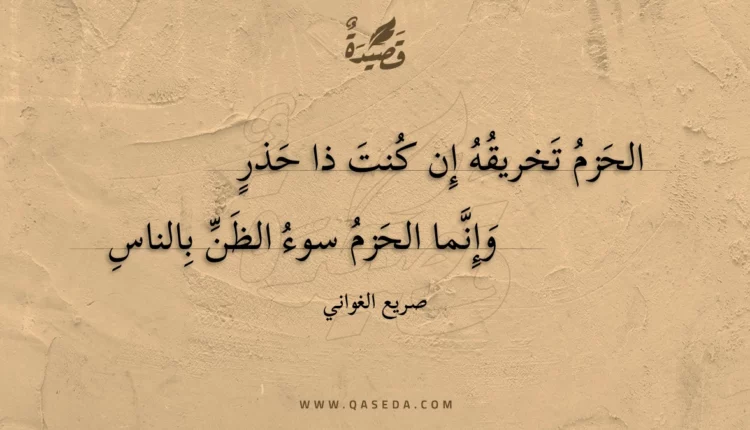 قَصِيدَةٌ
الحَزمُ تَخريقُهُ إِن كُنتَ ذا حَذرٍ
وَإِنَّما الحَزمُ سوءُ الظَنِّ بِالناسِ
صريع الغواني
WWW.QASEDA.COM